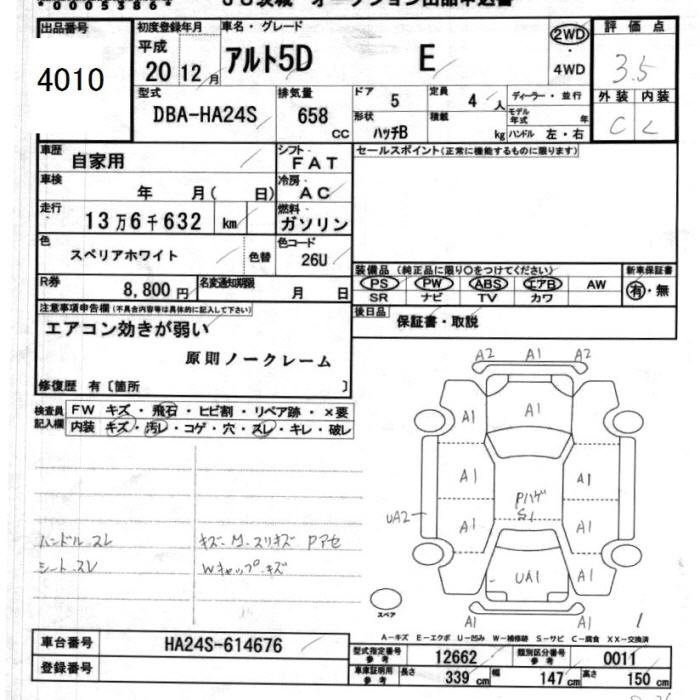 * 0 0 0 5 3 8 6 *
出品番号 初度登録年月 車名・グレード 2WD 評価点
4010 平成 20 12月 アルト5D E ・ 4WD 3.5
型式 DBA-HA24S 排気量 658 CC ドア 5 定員 4 人 ディーラー・並行 外装 内装
形状 ハッチB 積載 kg モデル年式 年 ハンドル 左・右 C C
車歴 自家用 シフト FAT セールスポイント(正常に機能するものに限ります)
車検 年 月( 日) 冷房 AC
走行 13万6千632 km 燃料 ガソリン
色 スペリアホワイト 色替 色コード 26U
装備品 (純正品に限り○をつけてください) 新車保証書
R券 8,800円 名変通知期限 月 日 PS PW ABS エアB AW 有・無
SR ナビ TV カワ
注意事項申告欄(不具合内容等は具体的に記入して下さい) 後日品 保証書・取説
エアコン効きが弱い
原則ノークレーム
修復歴 有〔箇所 〕
検査員記入欄 FW キズ・飛石・ヒビ割・リペア跡・×要
内装 キズ・汚レ・コゲ・穴・スレ・キレ・破レ
A2 A1 A2
A1 A1 A1
A1 A1
Pハゲ
S1
UA2 A1 A1
ハンドルスレ キズ・M・スリキズ Pアセ
シートスレ Wキャップ・キズ
UA1 A1
スペア A1 A1 A1
A-キズ E-エクボ U-凹み W-補修跡 S-サビ C-腐食 XX-交換済
車台番号 HA24S-614676 型式指定番号 参考 12662 類別区分番号 参考 0011
登録番号 車庫証明用 参考 長さ 339 cm 幅 147 cm 高さ 150 cm